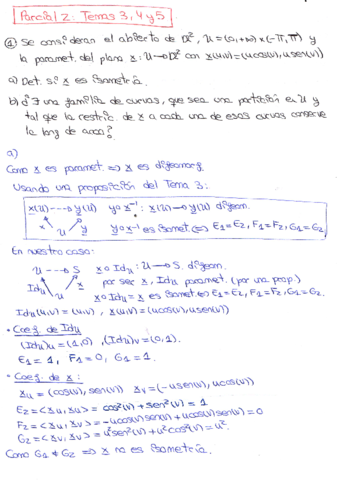 Parcial 2: Temas 3, 4 y 5
① Se consideran el abierto de ℝ², U = (0,+∞) × (-π, π) y
la paramet. del plano x: U → ℝ² con x(u,v) = (u cos(v), u sen(v))
a) Det. si x es isometría.
b) ¿∃ una familia de curvas, que sea una partición en U y
tal que la restric. de x a cada una de esas curvas conserve
la long. de arco?
a)
Como x es paramet. ⇒ x es difeomorf.
Usando una proposición del Tema 3:
x(U) ---→ y(U) y∘x⁻¹: x(U) → y(U) difeom.
x U y y∘x⁻¹ es isomet. ⇔ E₁=E₂, F₁=F₂, G₁=G₂
En nuestro caso:
U ---→ S x∘Id_U: U → S difeom.
Id_U U x por ser x, Id_U paramet. (por una prop.)
x∘Id_U = x es isomet. ⇔ E₁=E₂, F₁=F₂, G₁=G₂.
Id_U(u,v) = (u,v), x(u,v) = (u cos(v), u sen(v))
• Coef. de Id_U
(Id_U)_u = (1,0), (Id_U)_v = (0,1).
E₁ = 1, F₁ = 0, G₁ = 1.
• Coef. de x:
x_u = (cos(v), sen(v)) x_v = (-u sen(v), u cos(v))
E₂ = <x_u, x_u> = cos²(v) + sen²(v) = 1
F₂ = <x_u, x_v> = -u cos(v) sen(v) + u cos(v) sen(v) = 0
G₂ = <x_v, x_v> = u² sen²(v) + u² cos²(v) = u².
Como G₁ ≠ G₂ ⇒ x no es isometría.